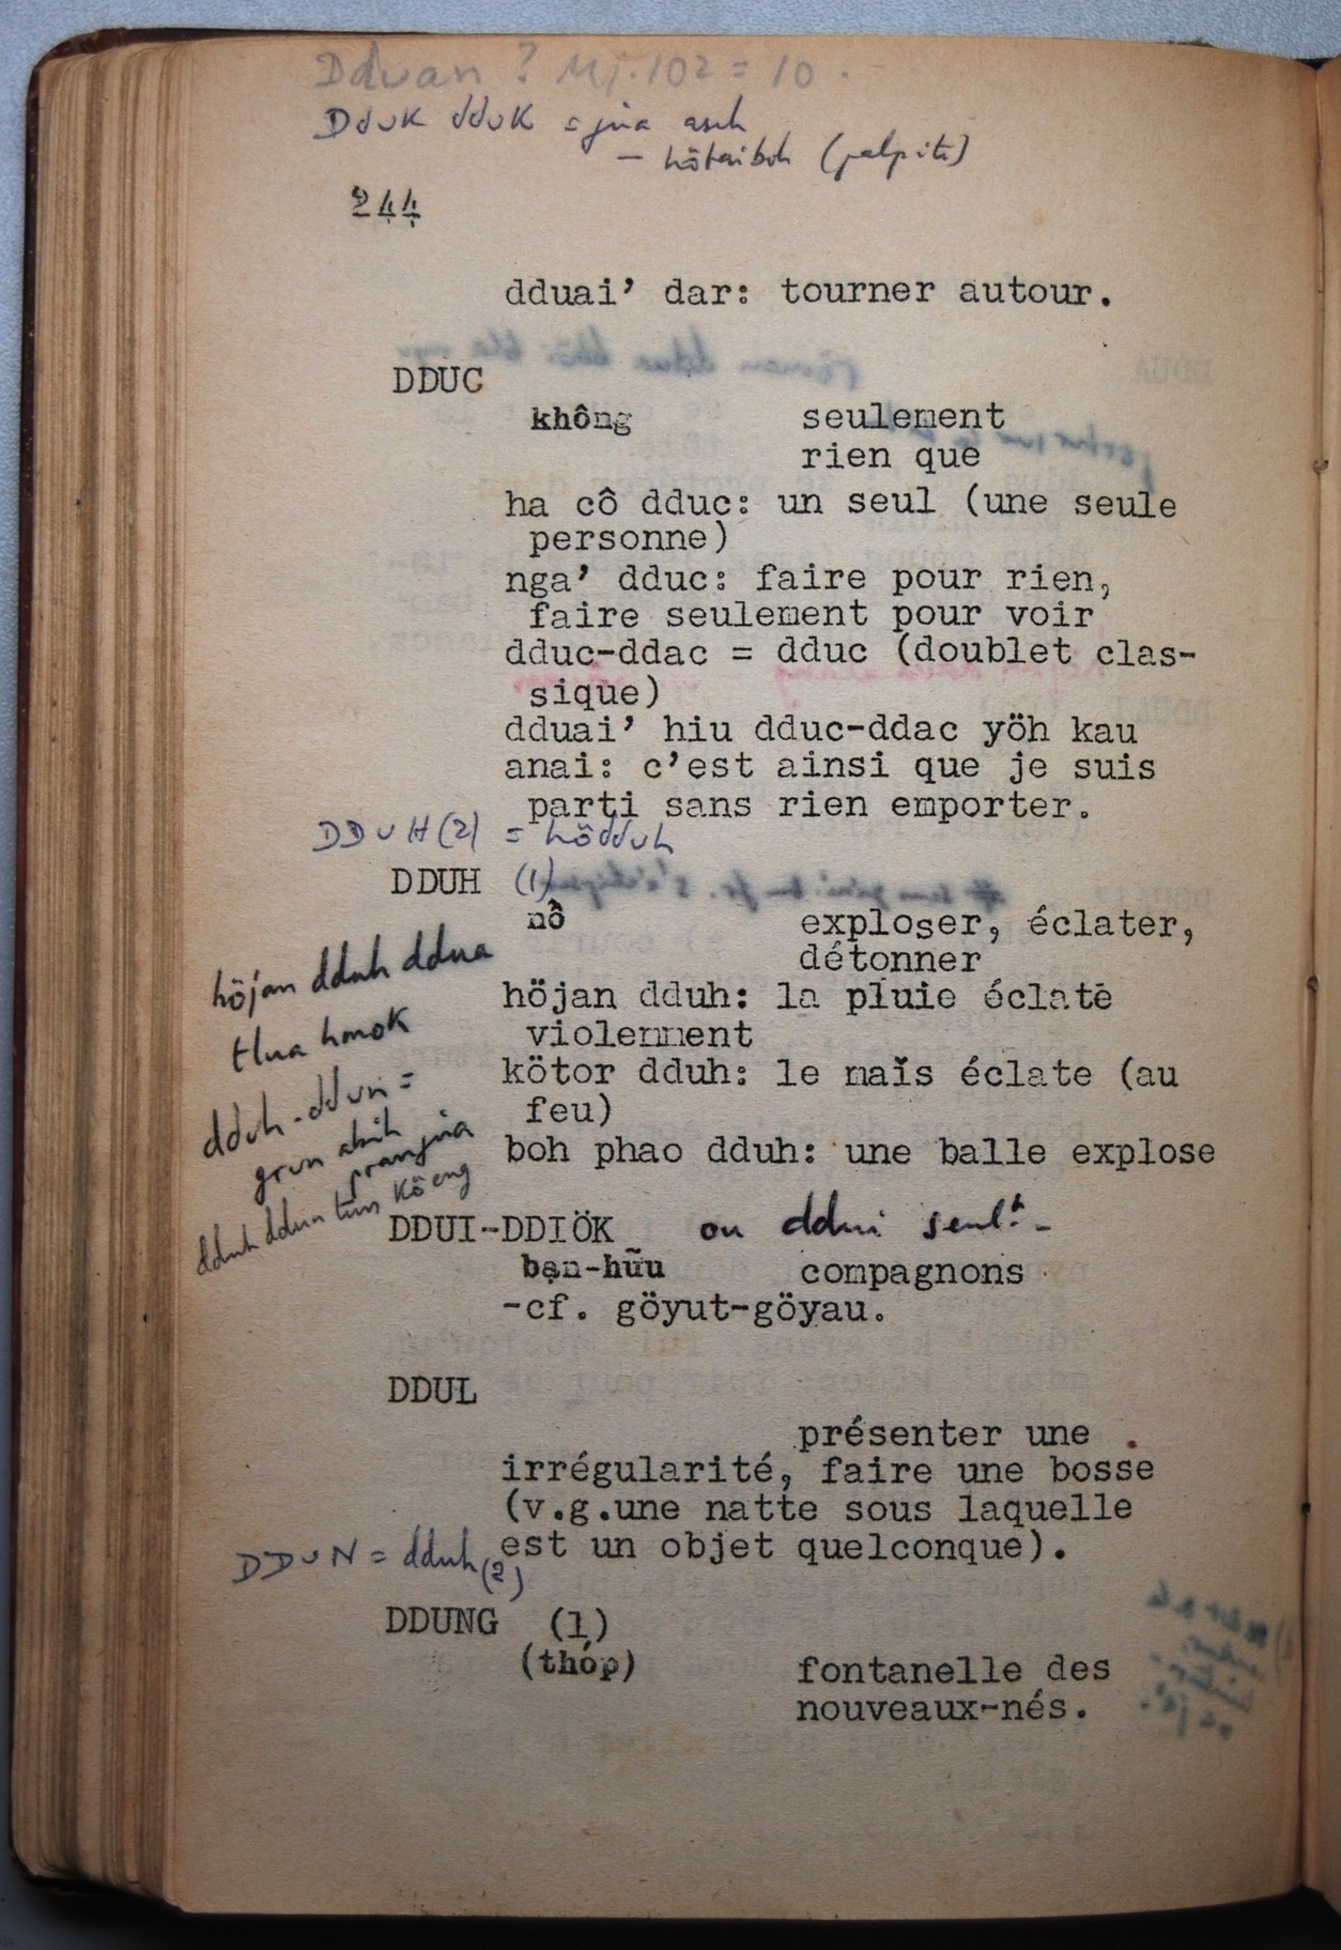 Dduan ? Mj. 102 = 10.
Dduk dduk = jua asuh
— hötaiboh (palpite)
244
dduai’ dar: tourner autour.
DDUC
không seulement
rien que
ha cô dduc: un seul (une seule
personne)
nga’ dduc: faire pour rien,
faire seulement pour voir
dduc-ddac = dduc (doublet clas-
sique)
dduai’ hiu dduc-ddac yöh kau
anai: c’est ainsi que je suis
parti sans rien emporter.
DDUH (2) = hödduh
DDUH (1)
nổ exploser, éclater,
détonner
höjan dduh: la pluie éclate
violemment
kötor dduh: le maïs éclate (au
feu)
boh phao dduh: une balle explose
höjan dduh ddua
tlua hmok
dduh-ddun =
grun
dduh ddun köeng
DDUI-DDIÖK ou ddui seult -
bạn-hữu compagnons
-cf. göyut-göyau.
DDUL
présenter une
irrégularité, faire une bosse
(v.g.une natte sous laquelle
est un objet quelconque).
DDUN = dduh (2)
DDUNG (1)
(thóp) fontanelle des
nouveaux-nés.